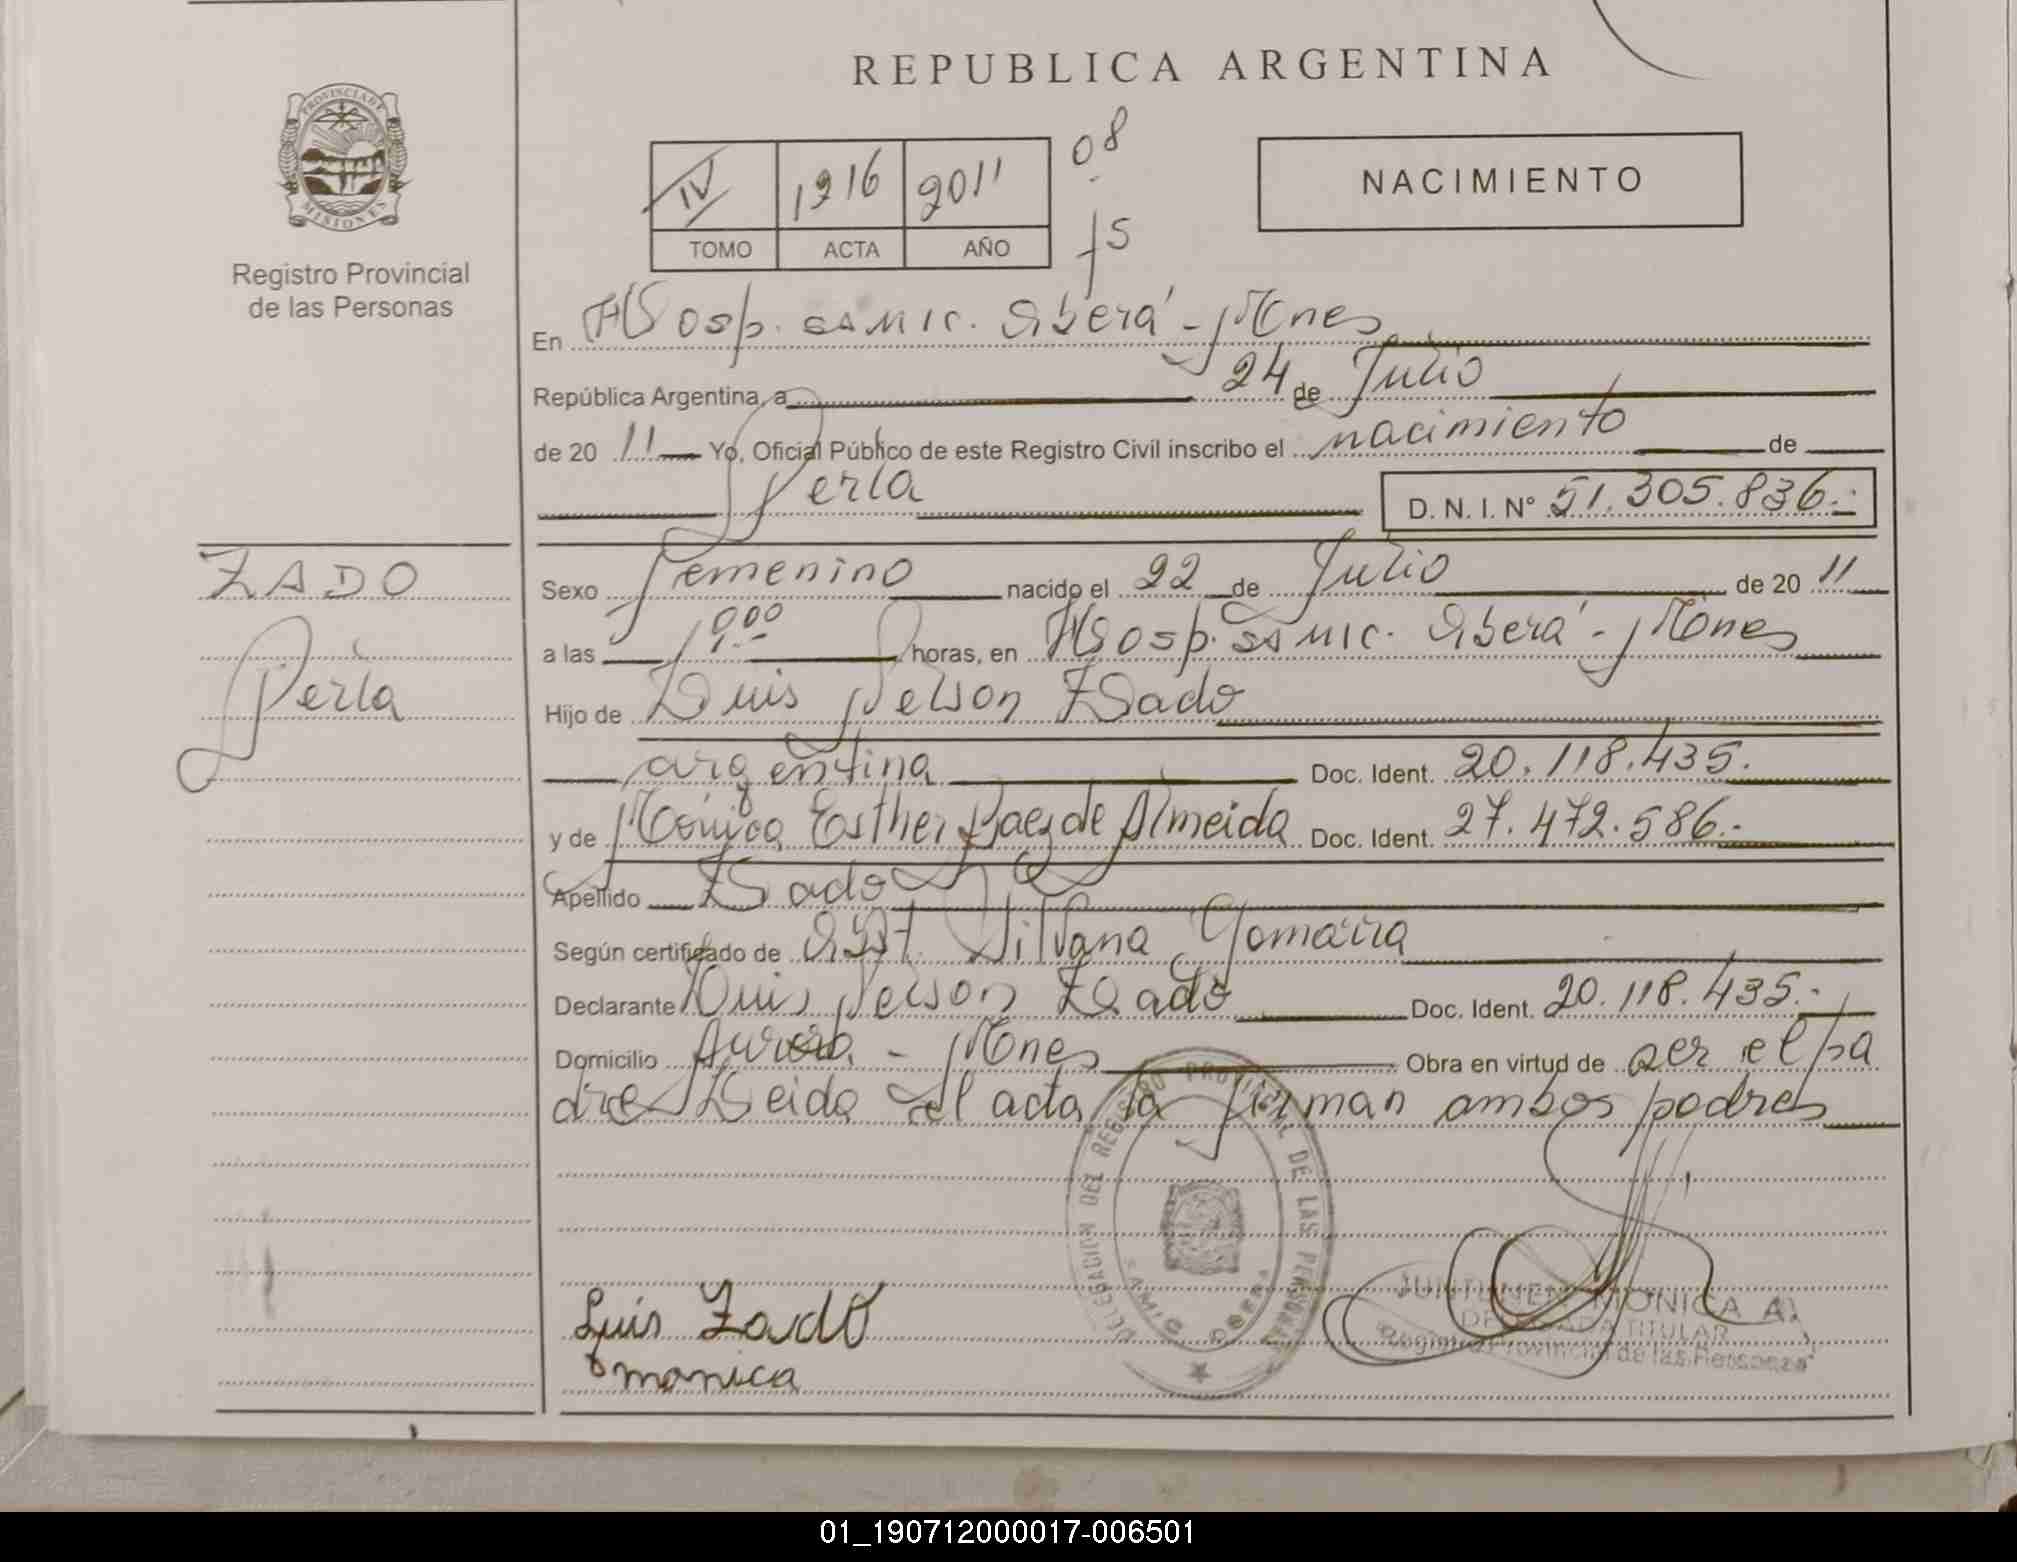 REPUBLICA ARGENTINA
PROVINCIA DE MISIONES
Registro Provincial
de las Personas
IV 1216 2011
TOMO ACTA AÑO
08
15
NACIMIENTO
En Hosp. SAMIC. Oberá - Mnes
República Argentina, a 24 de Julio
de 20 11 Yo, Oficial Público de este Registro Civil inscribo el nacimiento de
Perla D. N. I. N° 51.305.836.-
ZADO
Perla
Sexo femenino nacido el 22 de Julio de 20 11
a las horas, en Hosp. SAMIC. Oberá - Mnes
Hijo de Luis Nelson Zado
argentina Doc. Ident. 20.118.435.
y de Mónica Esther Paez de Almeida Doc. Ident. 27.472.586.-
Apellido Zado
Según certificado de Obst. Silvana Yomaira
Declarante Luis Nelson Zado Doc. Ident. 20.118.435.-
Domicilio Aurora - Mnes Obra en virtud de ser el pa
dre Leida el acta la firman ambos padres
DELEGACION DEL REGISTRO PROVINCIAL DE LAS PERSONAS
SAMIC OBERA
Luis Zado
monica
MONICA A.
DELEGADA TITULAR
Registro Provincial de las Personas
01_190712000017-006501